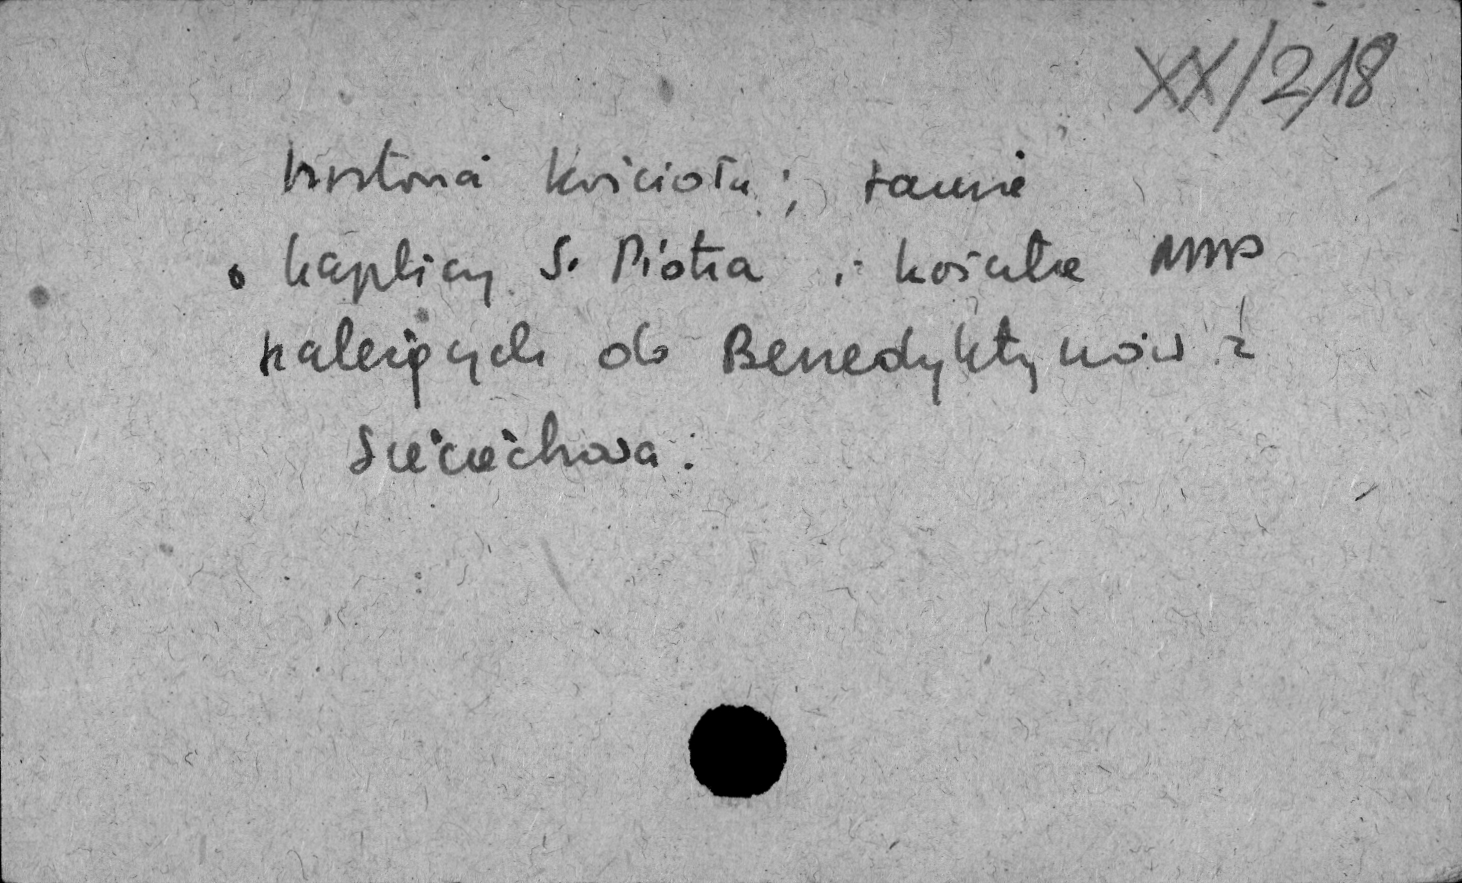 XX/2/18
historia kościoła; tamże
o kaplicy S. Piotra i kościele NMP
należących do Benedyktynów z
Sieciechowa.